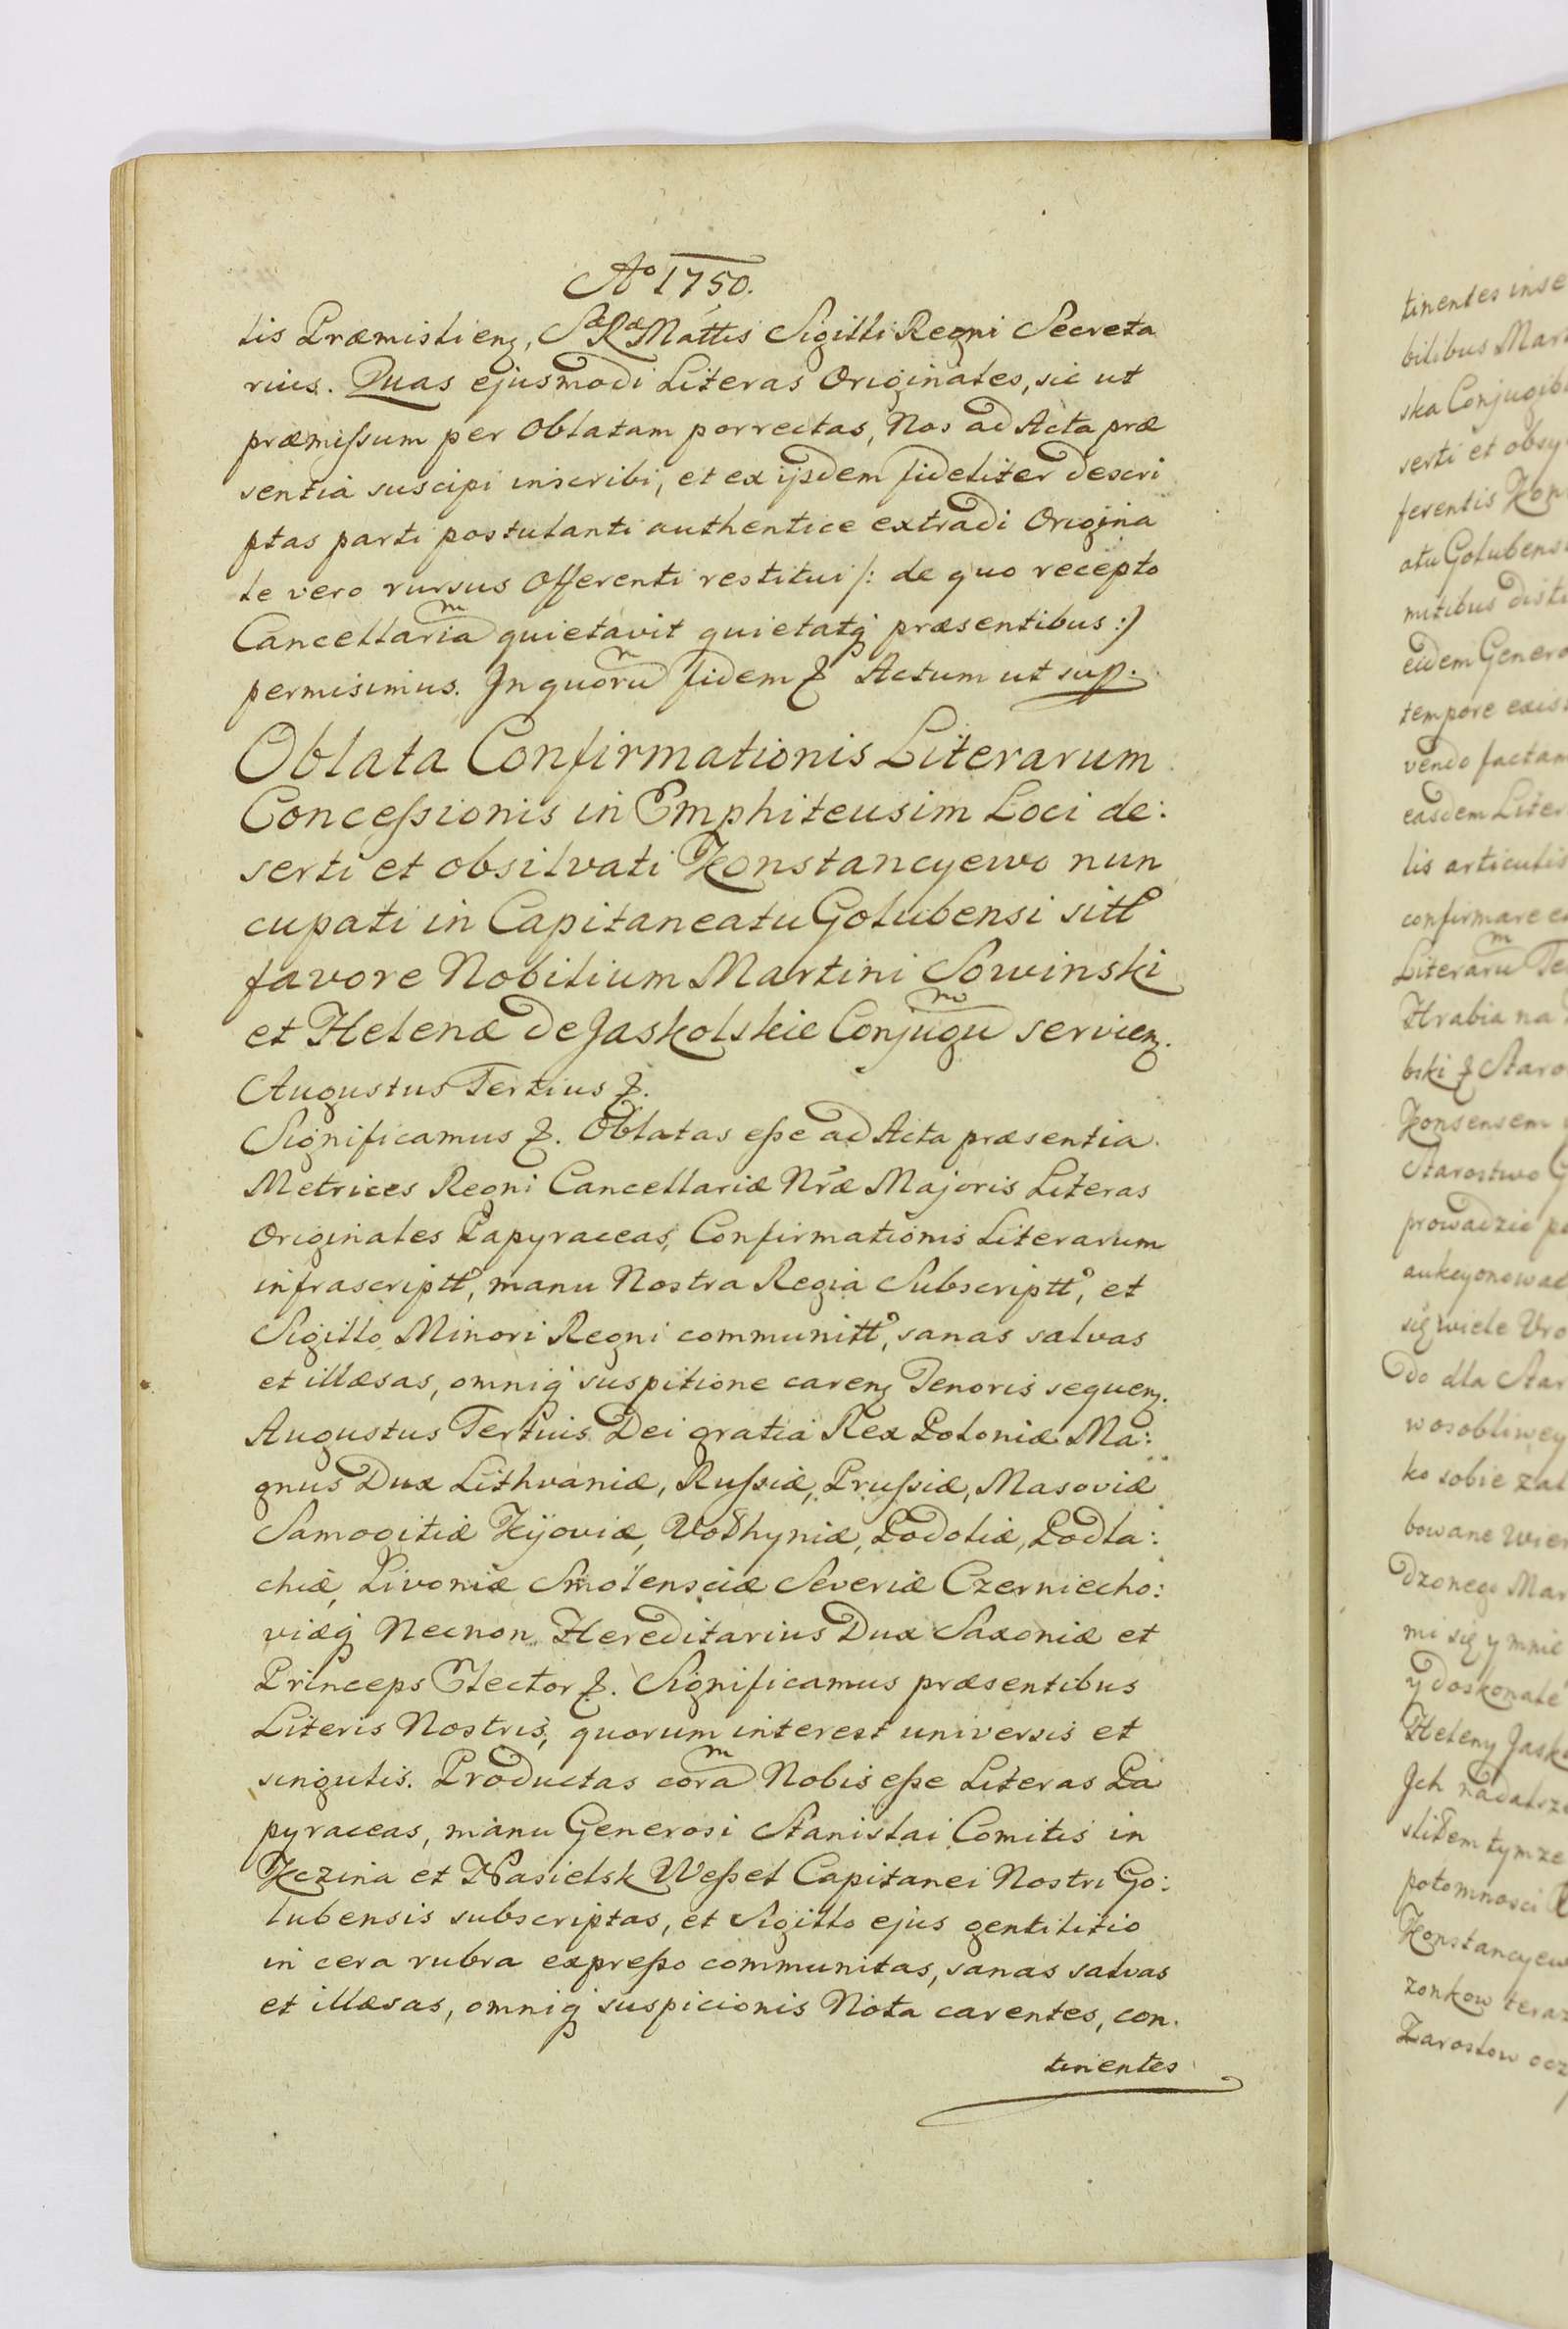 Aº 1750.
lis Præmislienȝ, Sæ Ræ Mattis Sigilli Regni Secreta
rius. Quas ejusmodi Literas Originales, sic ut
præmissum per Oblatam porrectas, Nos ad Acta præ
sentia suscipi inscribi, et ex ijsdem fideliter descri
ptas parti postulanti authentice extradi Origina
le vero rursus Offerenti restitui /: de quo recepto
Cancellariam quietavit quietatq præsentibus :/
permisimus. In quorum fidem &. Actum ut sup.
Oblata Confirmationis Literarum
Concessionis in Emphiteusim Loci de:
serti et obsilvati Konstancyewo nun
cupati in Capitaneatu Golubensi sitt
favore Nobilium Martini Sowinski
et Helenæ de Jaskolskie Conjugum servienȝ.
Augustus Tertius &.
Significamus &. Oblatas esse ad Acta præsentia
Metrices Regni Cancellariæ Nræ Majoris Literas
Originales Papyraceas, Confirmationis Literarum
infrascriptt, manu Nostra Regia Subscriptt, et
Sigillo Minori Regni communitt, sanas salvas
et illæsas, omniq suspitione carenȝ Tenoris sequenȝ.
Augustus Tertius Dei gratia Rex Poloniæ Ma:
gnus Dux Lithvaniæ, Russiæ, Prussiæ, Masoviæ
Samogitiæ Kijoviæ, Volhyniæ, Podoliæ, Podla:
chiæ, Livoniæ Smolensciæ Severiæ Czerniecho:
viæq Necnon Hereditarius Dux Saxoniæ et
Princeps Elector &. Significamus præsentibus
Literis Nostris, quorum interest universis et
singulis. Productas coram Nobis esse Literas Pa
pyraceas, manu Generosi Stanislai Comitis in
Kczina et Nasielsk Wessel Capitanei Nostri Go:
lubensis subscriptas, et Sigillo ejus gentilitio
in cera rubra expresso communitas, sanas salvas
et illæsas, omniq suspicionis Nota carentes, con.
tinentes
tinentes inse
bilibus Mar
ska Conjugib
serti et obsy
ferentis Kon
atu Golubens
mitibus disti
eidem Genero
tempore exis
vendo factam
easdem Liter
lis articulis
confirmare e
Literarum Te
Hrabia na
bski & Staro
Konsensem
Starostwo G
prowadzić po
aukcyonowac
się wiele Uro
do dla Star
w osobliwey
ko sobie zal
bowane wier
dzonego Mar
mi się y mnie
y doskonałe
Heleny Jask
Ich nadalsze
slikem tymze
potomnosci
Konstancyew
zonkow teraz
Zarostow ocz